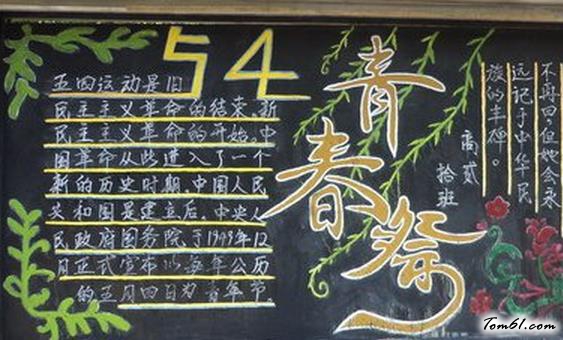 54
五四运动是旧
民主主义革命的结束,新
民主主义革命的开始。中
国革命从此进入了一个
新的历史时期,中国人民
共和国是建立后,中央人
民政府国务院于1949年12
月正式宣布以每年公历
的五月四日为青年节。
青春祭
高贰
拾班
不再回,但她会永
远记于中华民
族的丰碑。
Tom61.com